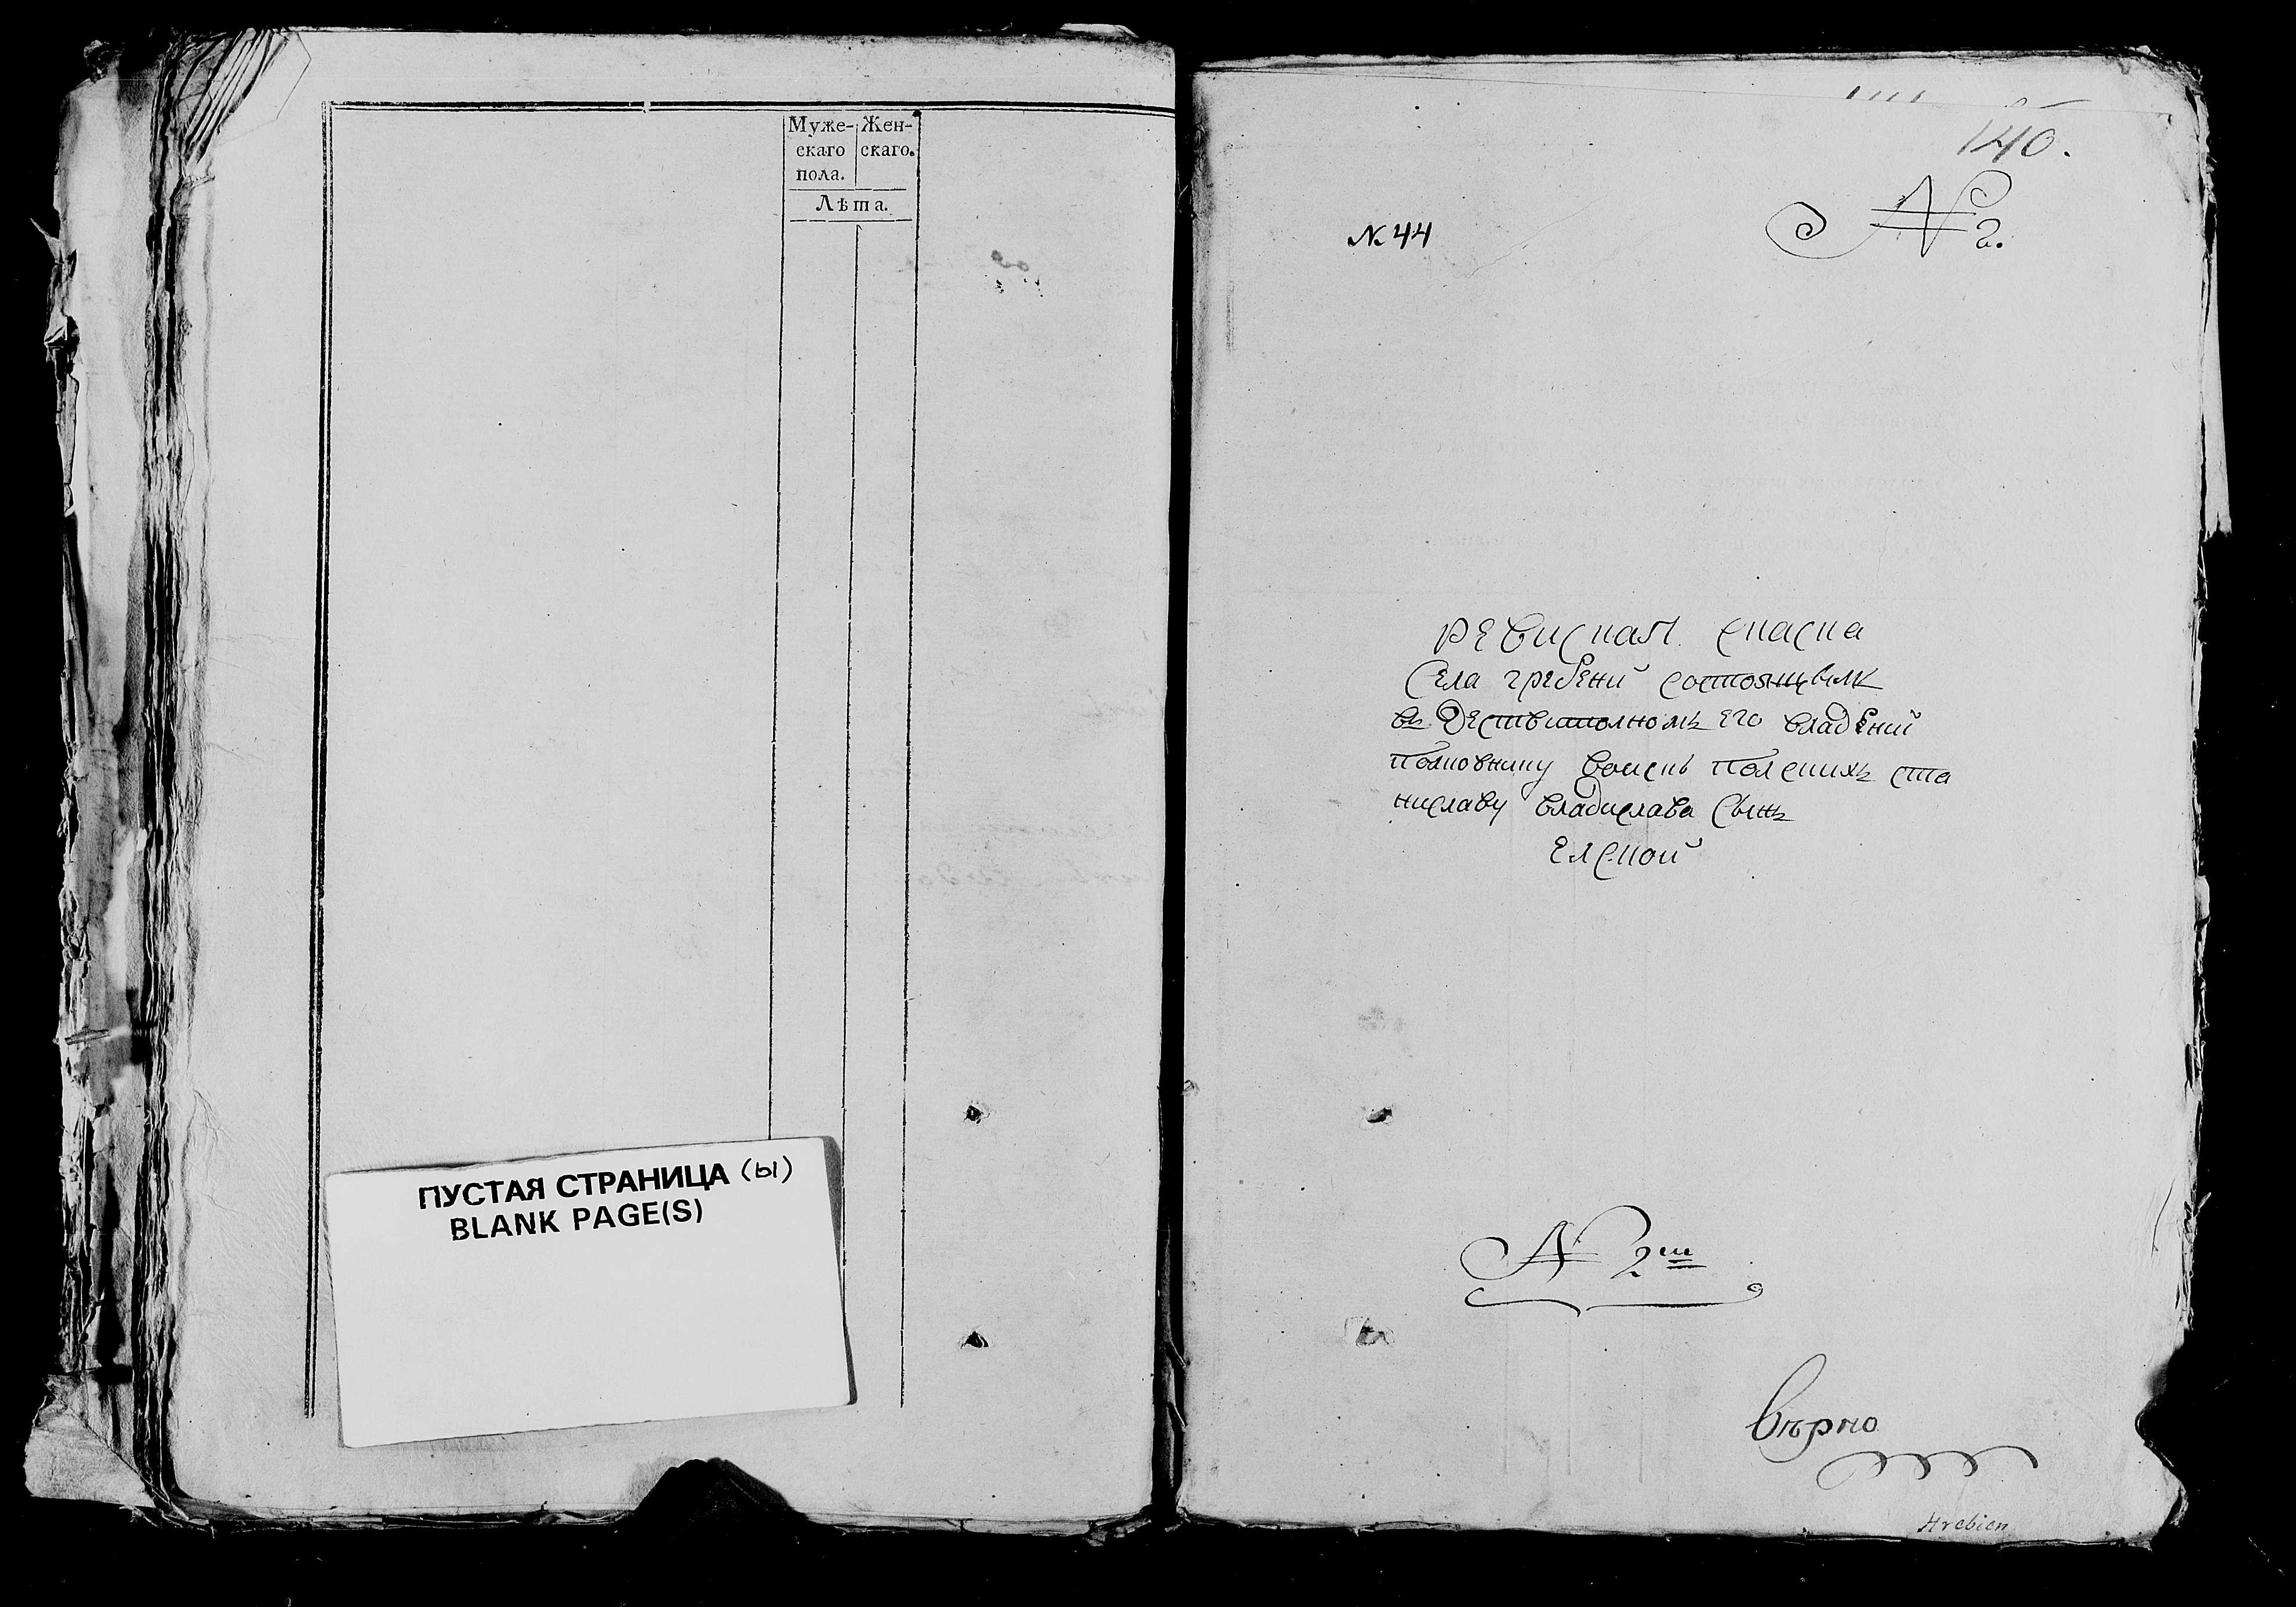 Муже- Жен-
скаго скаго.
пола.
Лѣта.
ПУСТАЯ СТРАНИЦА (ы)
BLANK PAGE(S)
140.
№ 2.
N. 44
ревиская скаска
Села гребени состоящывмъ
въ Дествителномъ его владѣний
полковнику воискъ полскихъ ста
ниславу владислава сынъ
елской
№ 2ш
вѣрно
Hrebien